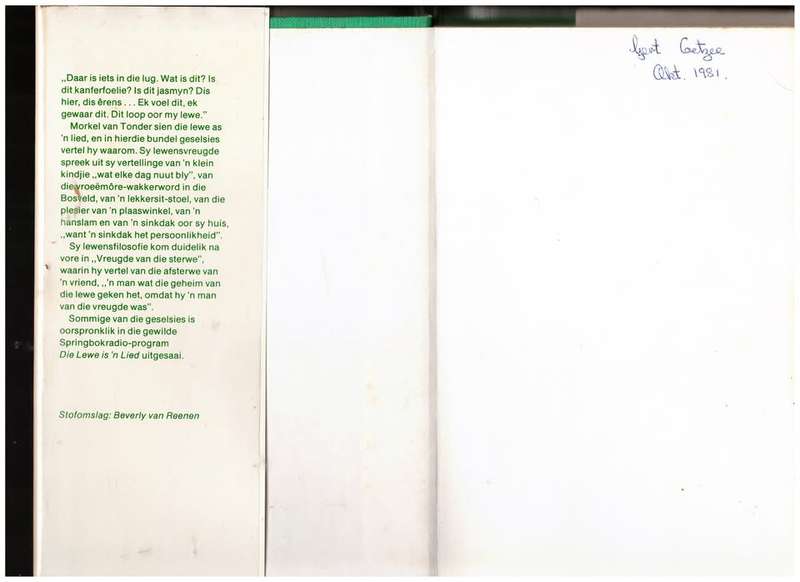 „Daar is iets in die lug. Wat is dit? Is
dit kanferfoelie? Is dit jasmyn? Dis
hier, dis êrens . . . Ek voel dit, ek
gewaar dit. Dit loop oor my lewe.”
Morkel van Tonder sien die lewe as
'n lied, en in hierdie bundel geselsies
vertel hy waarom. Sy lewensvreugde
spreek uit sy vertellinge van 'n klein
kindjie „wat elke dag nuut bly”, van
die vroeëmôre-wakkerword in die
Bosveld, van 'n lekkersit-stoel, van die
plesier van 'n plaaswinkel, van 'n
hanslam en van 'n sinkdak oor sy huis,
„want 'n sinkdak het persoonlikheid”.
Sy lewensfilosofie kom duidelik na
vore in „Vreugde van die sterwe”,
waarin hy vertel van die afsterwe van
'n vriend, „'n man wat die geheim van
die lewe geken het, omdat hy 'n man
van die vreugde was”.
Sommige van die geselsies is
oorspronklik in die gewilde
Springbokradio-program
Die Lewe is 'n Lied uitgesaai.
Stofomslag: Beverly van Reenen
Gert Coetzee
Okt. 1981.